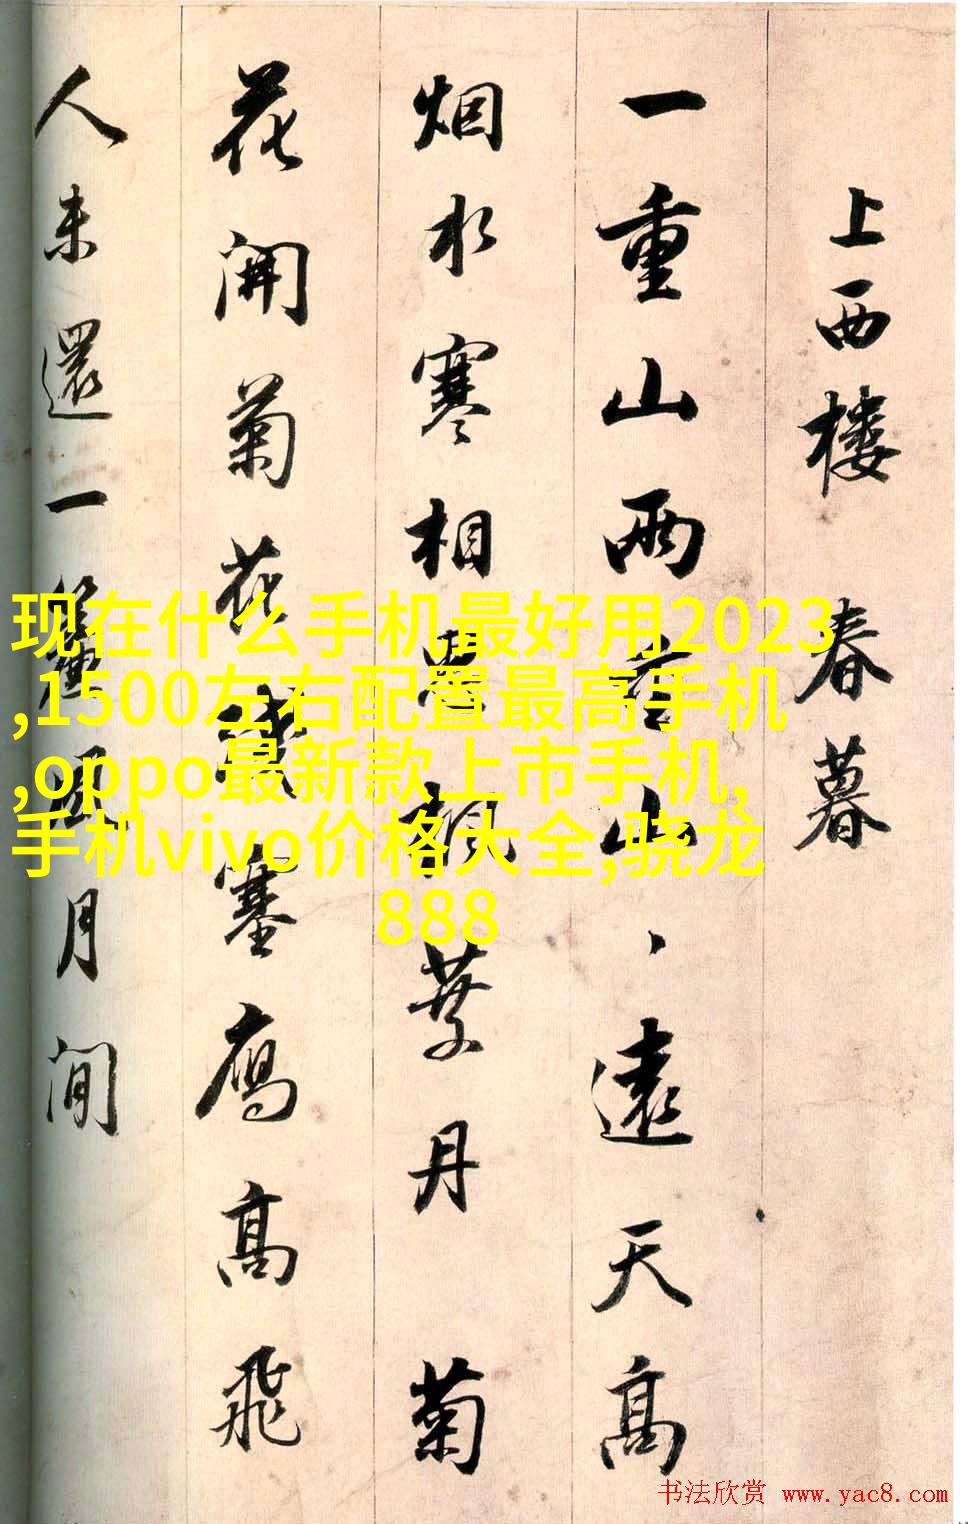 上西楼 春暮
一重山两重山、遠天高
烟水寒相思楓葉丹 菊
花開菊花残塞雁高飛
人未還一簾風月閒
现在什么手机最好用2023
,1500左右配置最高手机
,oppo最新款上市手机,
手机vivo价格大全,骁龙
888
书法欣赏 www.yac8.com